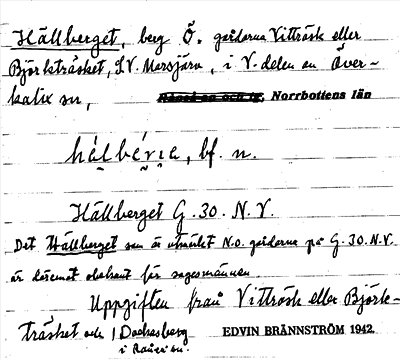 Hällberget, berg Ö. gårdarna Vitträsk eller
Björkträsket, S.V. Morsjärv, i V-delen av Över-
kalix sn, Norrbottens län
hálbéria, bf. n.
Hällberget G.30.N.V.
Det Hällberget som är utmärkt N.O. gårdarna på G.30.N.V.
är däremot obekant för sagesmännen.
Uppgiften från Vitträsk eller Björk-
träsket och Dockasberg EDVIN BRÄNNSTRÖM 1942
i Råneå sn.